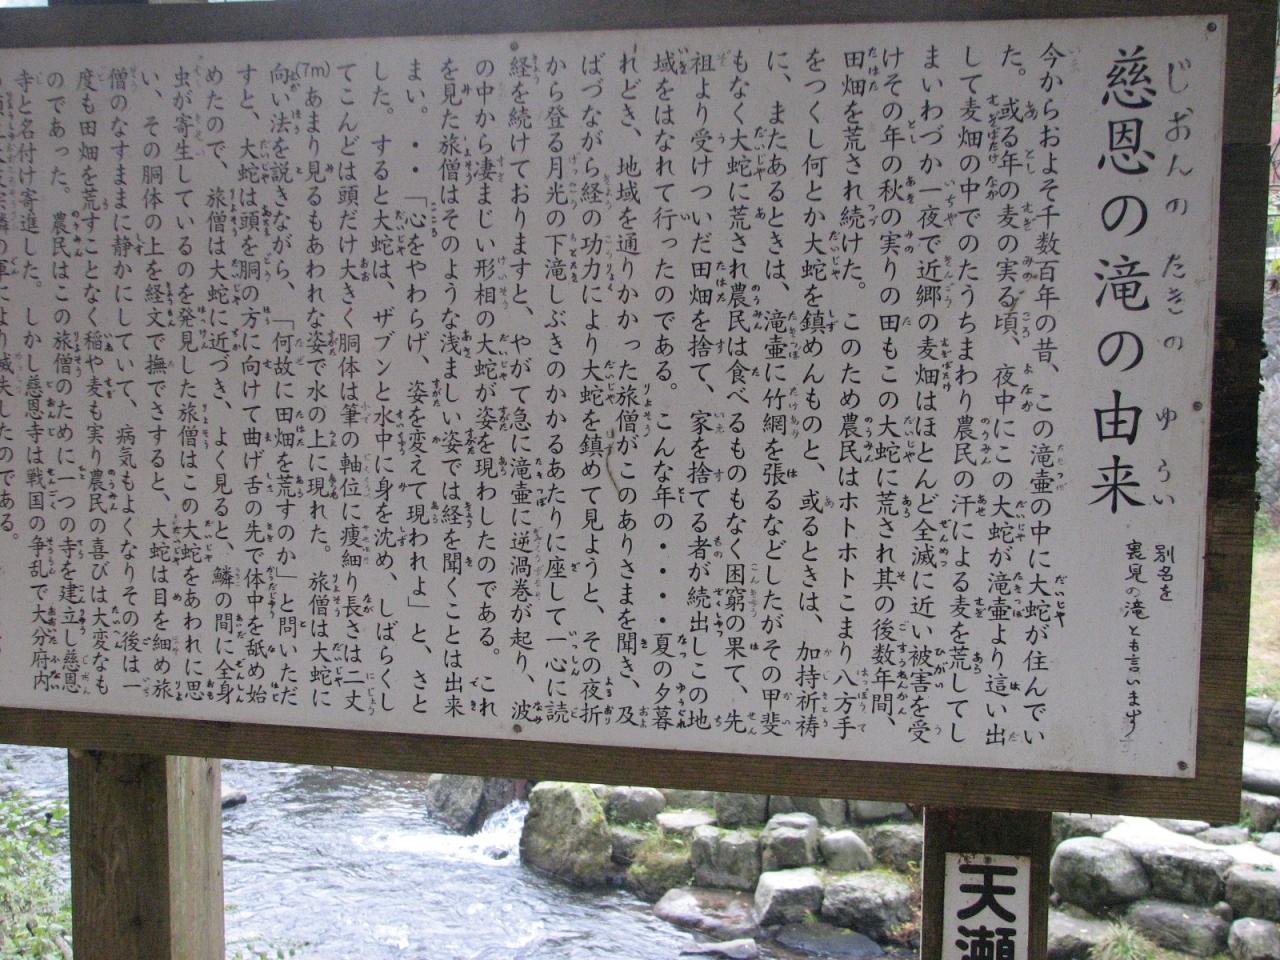 じおんのたきのゆうい
慈恩の滝の由来
別名を
裏見の滝とも言います
今からおよそ千数百年の昔、この滝壷の中に大蛇が住んでい
た。或る年の麦の実る頃、夜中にこの大蛇が滝壷より這い出
して麦畑の中でのたうちまわり農民の汗による麦を荒してし
まいわづか一夜で近郷の麦畑はほとんど全滅に近い被害を受
けその年の秋の実りの田もこの大蛇に荒され其の後数年間、
田畑を荒され続けた。このため農民はホトホトこまり八方手
をつくし何とか大蛇を鎮めんものと、或るときは、加持祈祷
に、またあるときは、滝壷に竹網を張るなどしたがその甲斐
もなく大蛇に荒され農民は食べるものもなく困窮の果て、先
祖より受けついだ田畑を捨て、家を捨てる者が続出しこの地
域をはなれて行ったのである。こんな年の・・・・夏の夕暮
れどき、地域を通りかかった旅僧がこのありさまを聞き、及
ばづながら経の功力により大蛇を鎮めて見ようと、その夜折
から登る月光の下滝しぶきのかかるあたりに座して一心に読
経を続けておりますと、やがて急に滝壷に逆渦巻が起り、波
の中から凄まじい形相の大蛇が姿を現わしたのである。これ
を見た旅僧はそのような浅ましい姿では経を聞くことは出来
まい。・・「心をやわらげ、姿を変えて現われよ」と、さと
した。すると大蛇は、ザブンと水中に身を沈め、しばらくし
てこんどは頭だけ大きく胴体は筆の軸位に痩細り長さは二丈
(7m)あまり見るもあわれな姿で水の上に現れた。旅僧は大蛇に
向い法を説きながら、「何故に田畑を荒すのか」と問いただ
すと、大蛇は頭を胴の方に向けて曲げ舌の先で体中を舐め始
めたので、旅僧は大蛇に近づき、よく見ると、鱗の間に全身
虫が寄生しているのを発見した旅僧はこの大蛇をあわれに思
い、その胴体の上を経文で撫でさすると、大蛇は目を細め旅
僧のなすままに静かにしていて、病気もよくなりその後は一
度も田畑を荒すことなく稲や麦も実り農民の喜びは大変なも
のであった。農民はこの旅僧のために一つの寺を建立し慈恩
寺と名付け寄進した。しかし慈恩寺は戦国の争乱で大分府内
の軍により滅失したのである。
天瀬